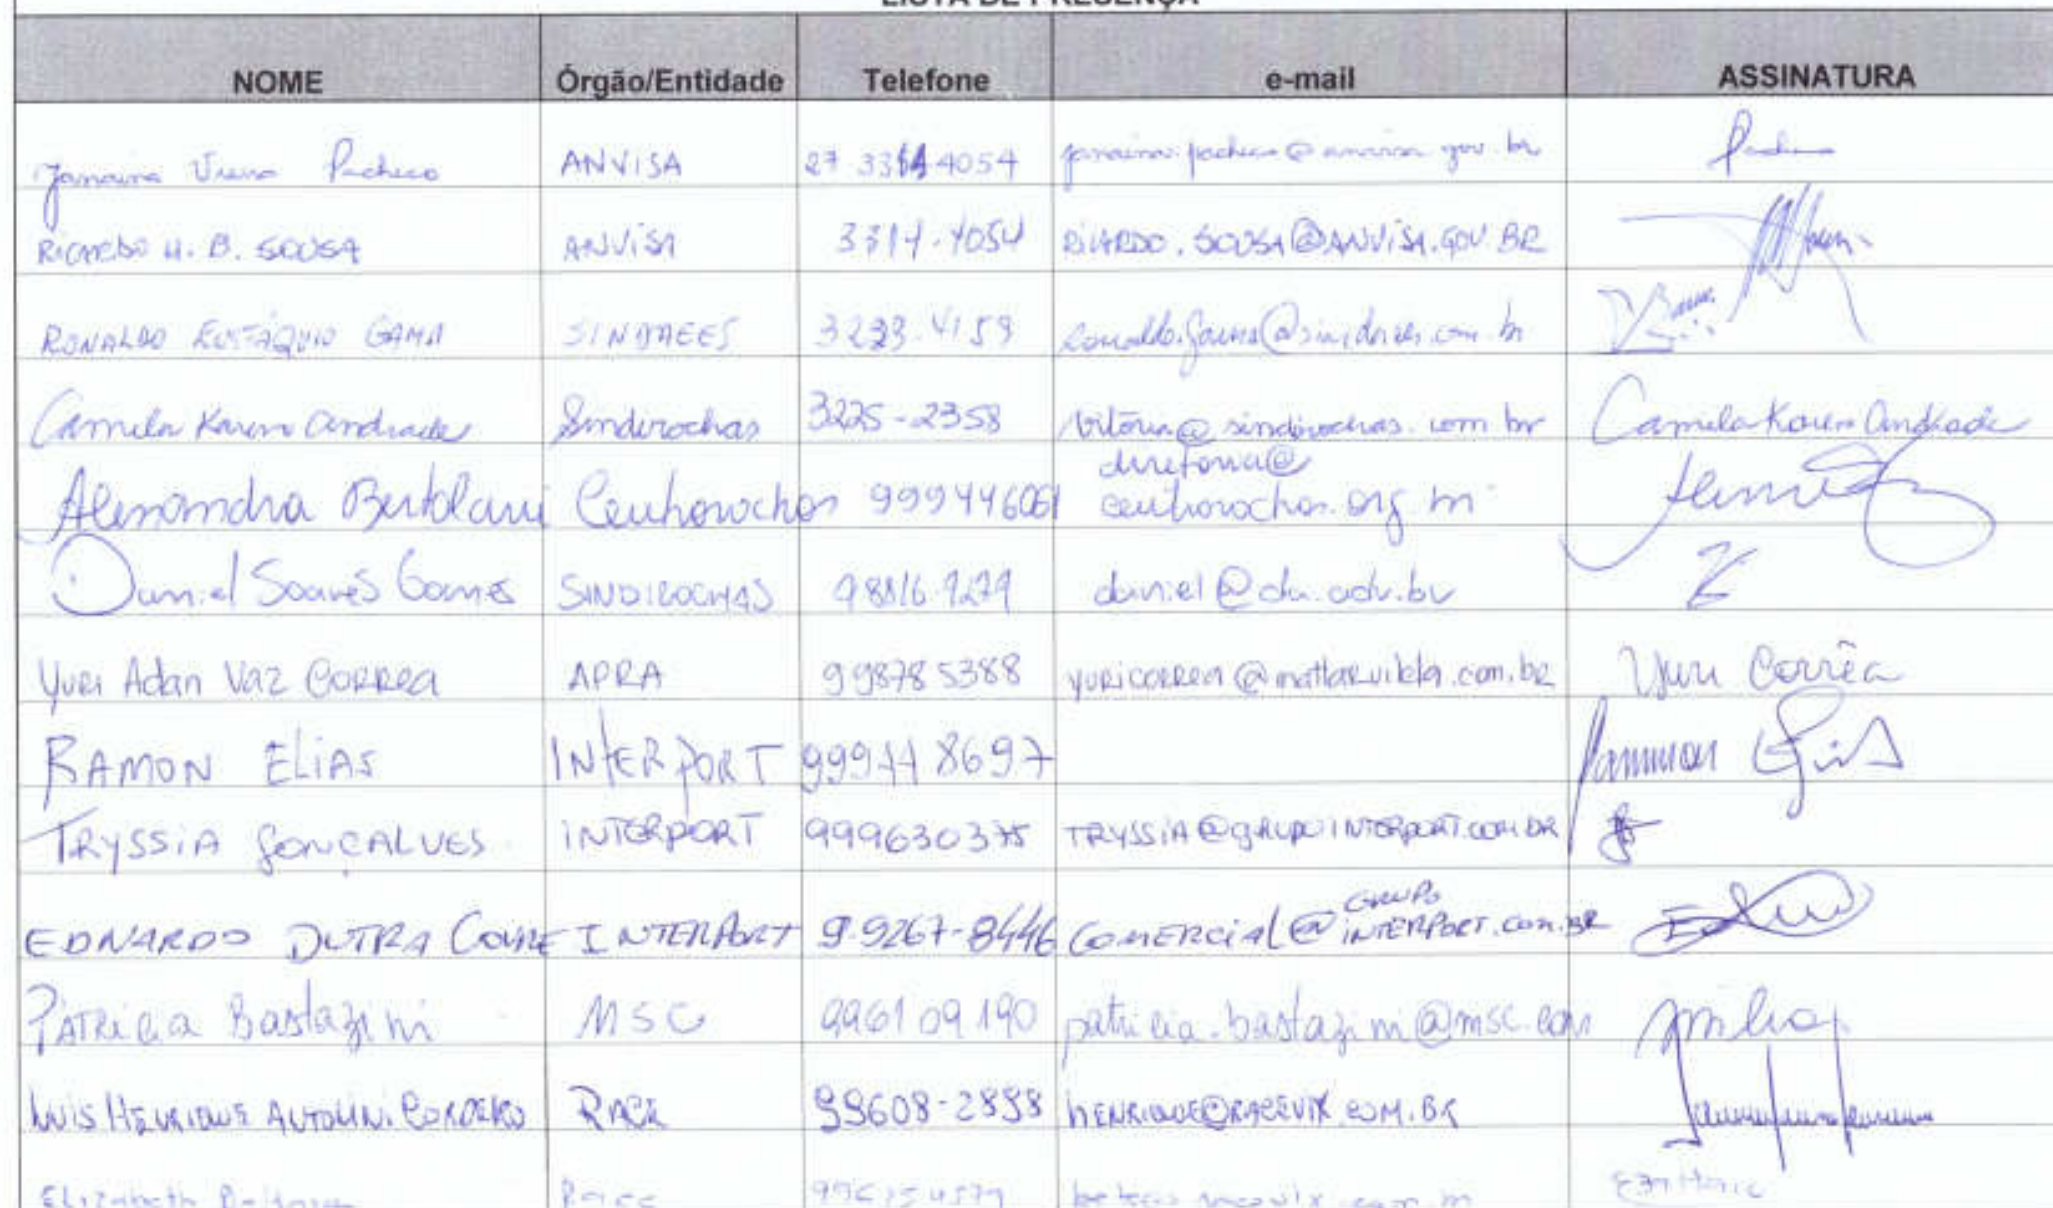 LISTA DE PRESENÇA
NOME Órgão/Entidade Telefone e-mail ASSINATURA
Janaina Pacheco ANVISA 27 3314 4054 janaina.pacheco@anvisa.gov.br
Ricardo H. B. SOUSA ANVISA 3314-4054 RICARDO.SOUSA@ANVISA.GOV.BR
RONALDO EUSTÁQUIO GAMA SINDAEES
Camila Karen Andrade Sindirochas 3225-2358 vitoria@sindirochas.com br Camila Karen Andrade
diretoria@
Alessandra Bertolani Centrorochas centrorochas.org br
Daniel Soares Gomes SINDIROCHAS daniel@da.adv.br
Yuri Adan Vaz Correa APRA 998785388 yuricorrea@mattarvilela.com.br Yuri Corrêa
RAMON ELIAS INTERPORT Ramon Elias
TRYSSIA GONÇALVES INTERPORT 999630375 TRYSSIA@GRUPOINTERPORT.COM.BR
GRUPO
EDNARDO DUTRA INTERPORT 9.9267-8446 COMERCIAL@INTERPORT.COM.BR
PATRICIA Bastazini MSC 996109190 patricia.bastazini@msc.com
LUIS HENRIQUE CORDEIRO RACE 99608-2898 HENRIQUE@RACEVIX.COM.BR
Elizabeth Race